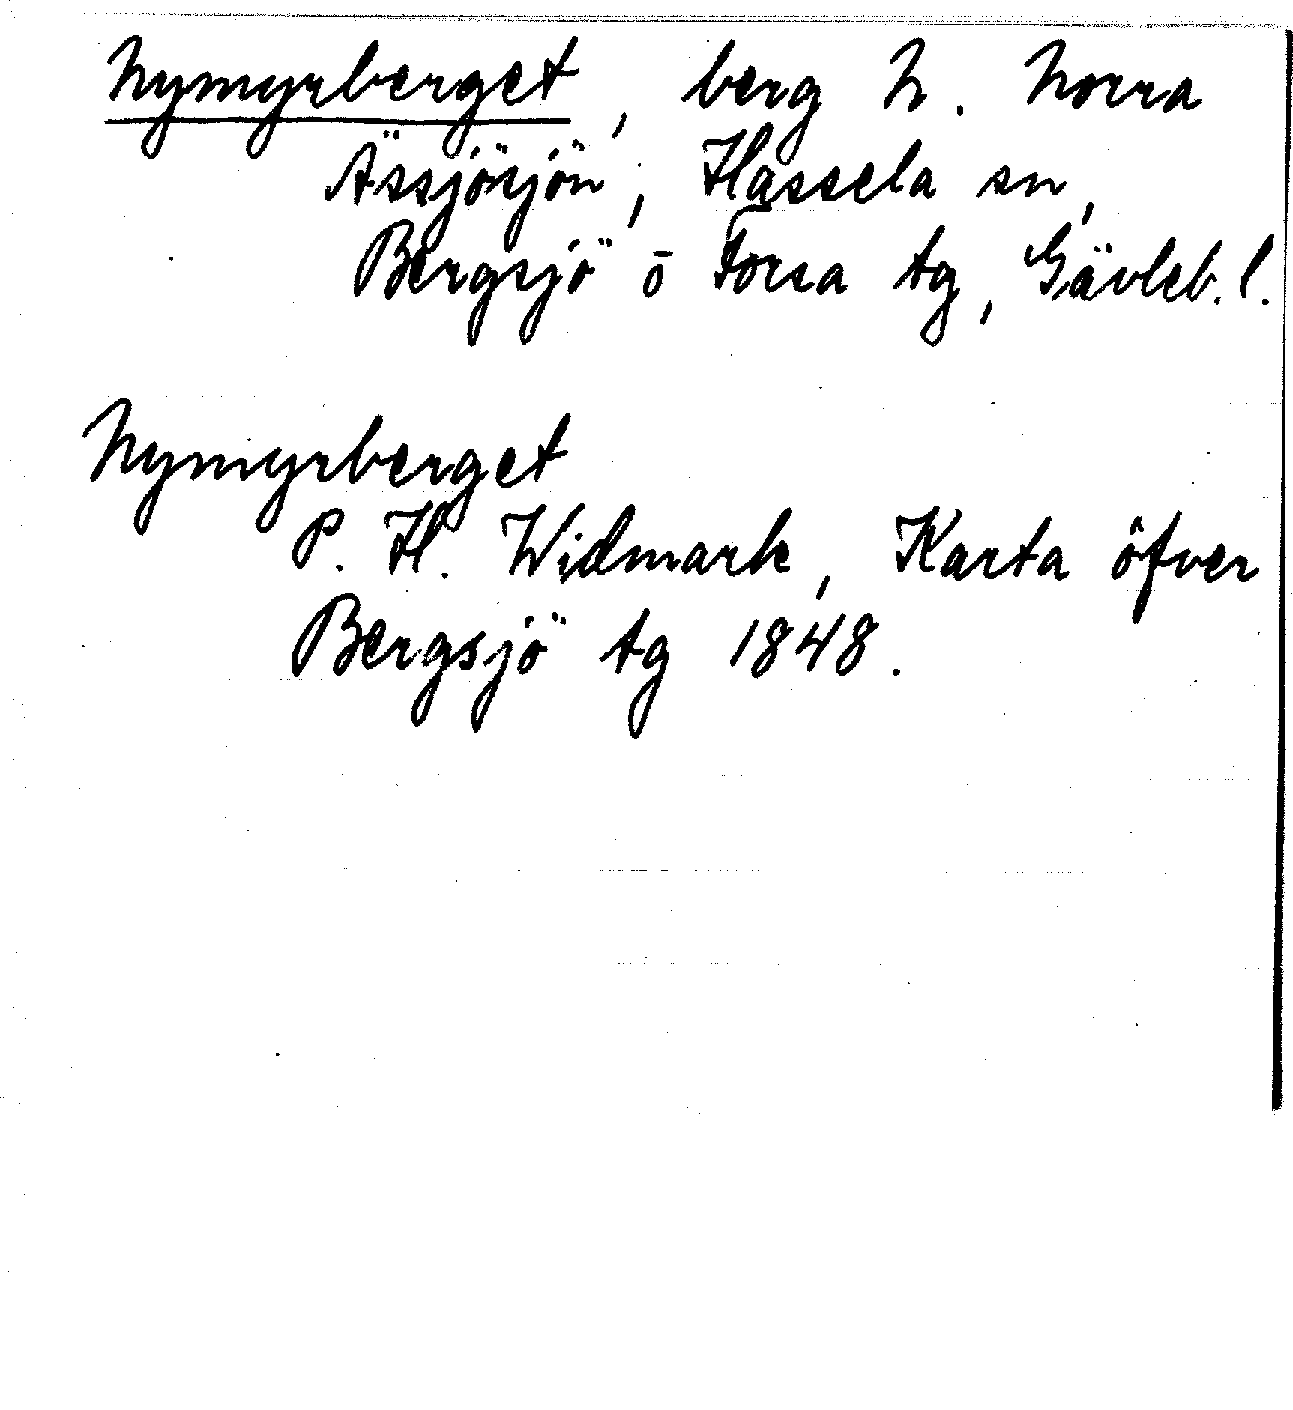 Nymyrberget, berg N. Norra
Ässjösjön, Hassela sn,
Bergsjö o Forsa tg, Gävleb. l.
Nymyrberget
P. H. Widmark, Karta öfver
Bergsjö tg 1848.